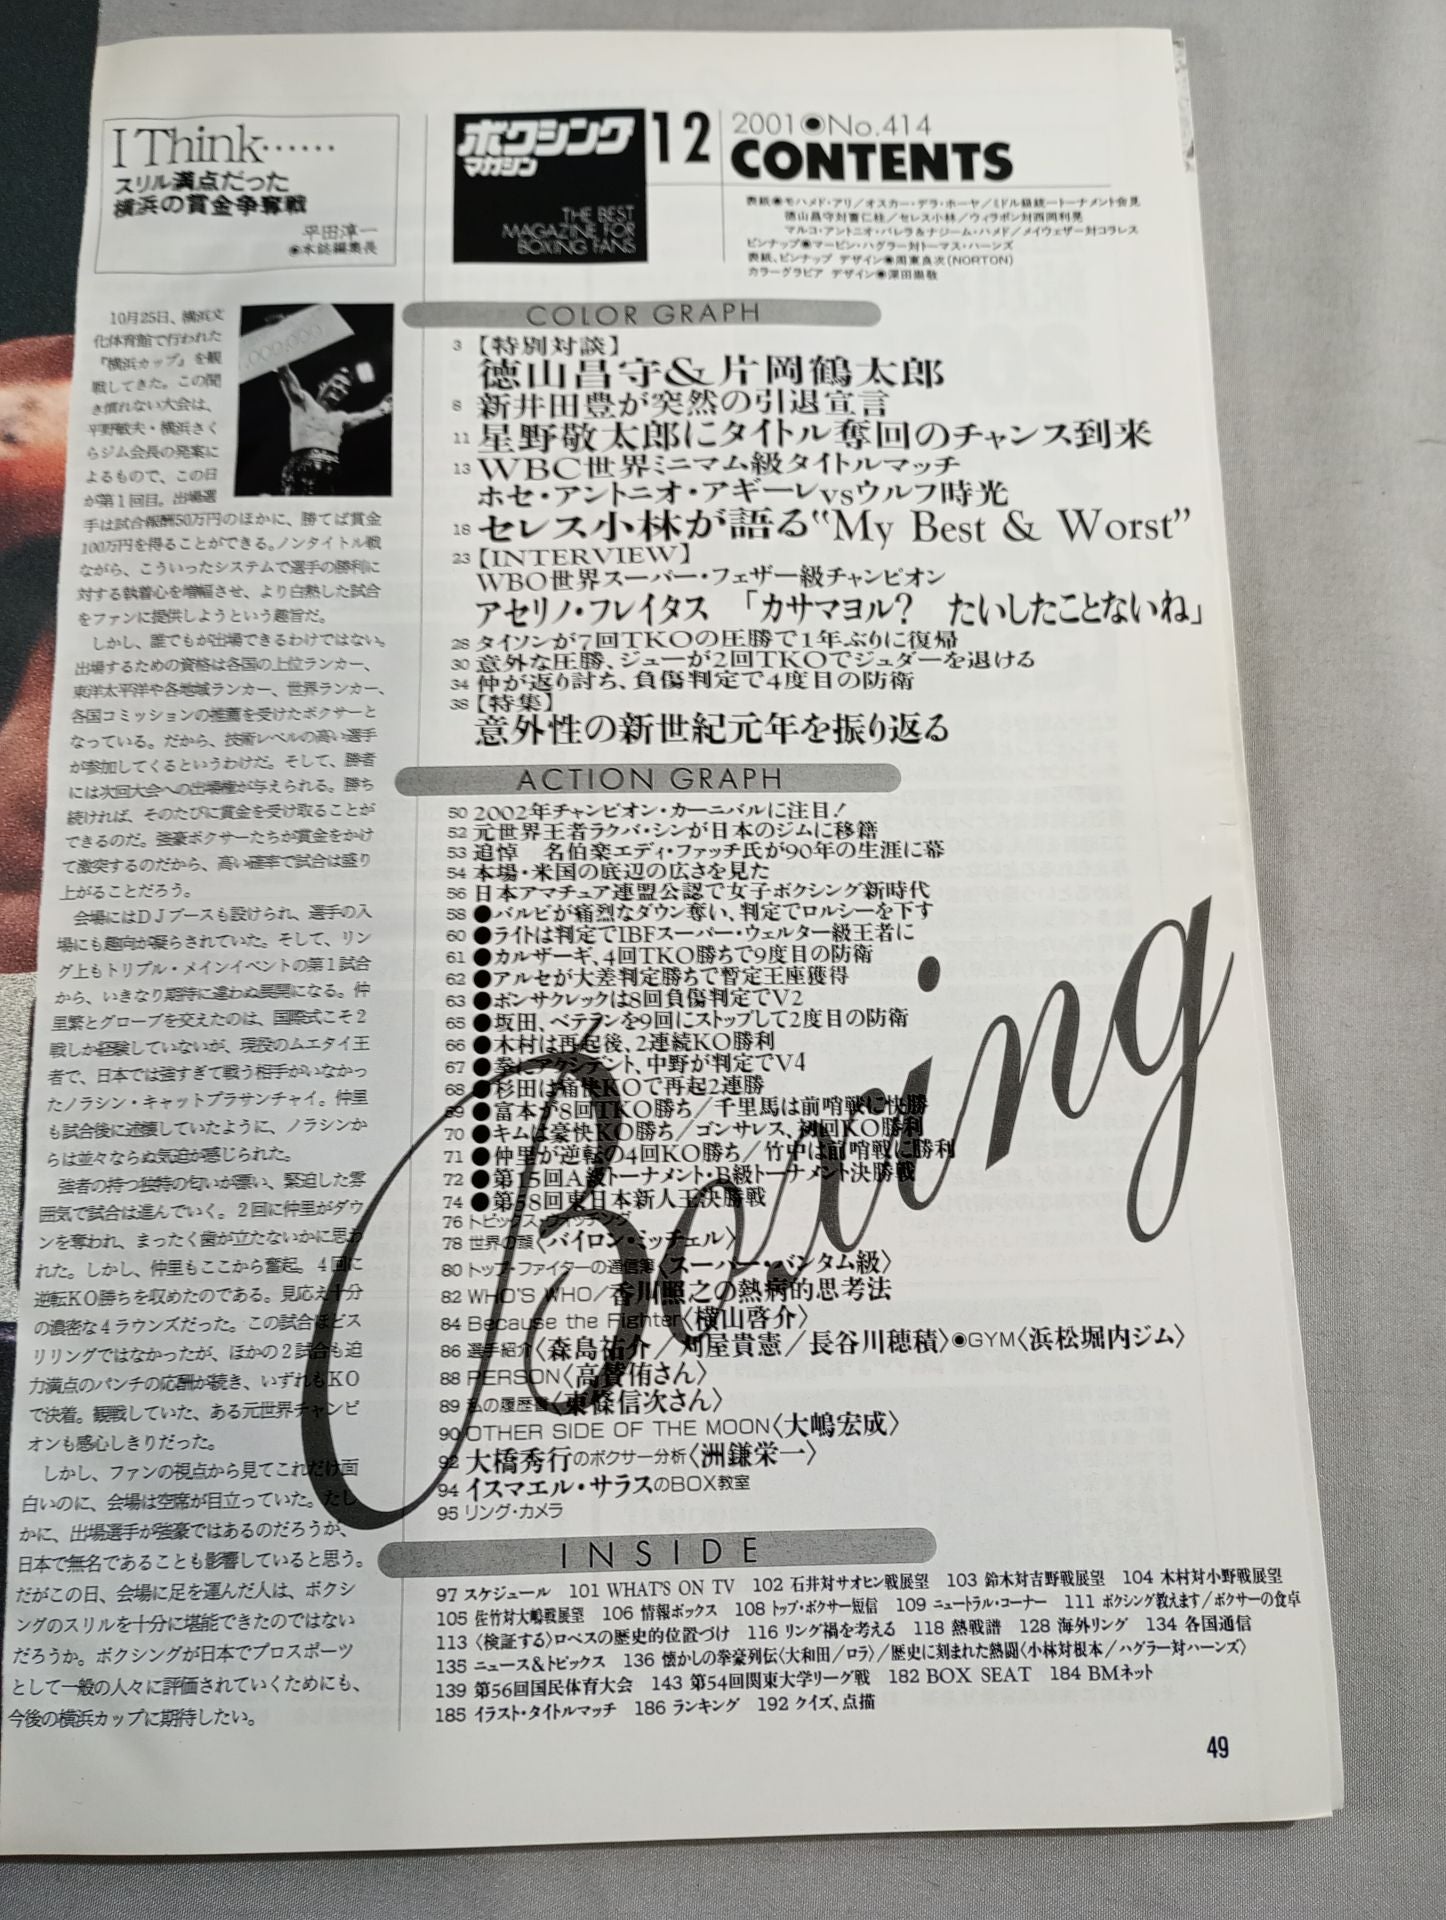 I Think……
スリル満点だった
横浜の賞金争奪戦
平田淳一
◉本誌編集長
10月25日、横浜文
化体育館で行われた
『横浜カップ』を観
戦してきた。この聞
き慣れない大会は、
平野敏夫・横浜さく
らジム会長の発案に
よるもので、この日
が第1回目。出場選
手は試合報酬50万円のほかに、勝てば賞金
100万円を得ることができる。ノンタイトル戦
ながら、こういったシステムで選手の勝利に
対する執着心を増幅させ、より白熱した試合
をファンに提供しようという趣旨だ。
しかし、誰でもが出場できるわけではない。
出場するための資格は各国の上位ランカー、
東洋太平洋や各地域ランカー、世界ランカー、
各国コミッションの推薦を受けたボクサーと
なっている。だから、技術レベルの高い選手
が参加してくるというわけだ。そして、勝者
には次回大会への出場権が与えられる。勝ち
続ければ、そのたびに賞金を受け取ることが
できるのだ。強豪ボクサーたちが賞金をかけ
て激突するのだから、高い確率で試合は盛り
上がることだろう。
会場にはDJブースも設けられ、選手の入
場にも趣向が凝らされていた。そして、リン
グ上もトリプル・メインイベントの第1試合
から、いきなり期待に違わぬ展開になる。仲
里繁とグローブを交えたのは、国際式こそ2
戦しか経験していないが、現役のムエタイ王
者で、日本では強すぎて戦う相手がいなかっ
たノラシン・キャットプラサンチャイ。仲里
も試合後に述懐していたように、ノラシンか
らは並々ならぬ気迫が感じられた。
強者の持つ独特の匂いが漂い、緊迫した雰
囲気で試合は進んでいく。2回に仲里がダウ
ンを奪われ、まったく歯が立たないかに思わ
れた。しかし、仲里もここから奮起。4回に
逆転KO勝ちを収めたのである。見応え十分
の濃密な4ラウンズだった。この試合ほどス
リリングではなかったが、ほかの2試合も迫
力満点のパンチの応酬が続き、いずれもKO
で決着。観戦していた、ある元世界チャンピ
オンも感心しきりだった。
しかし、ファンの視点から見てこれだけ面
白いのに、会場は空席が目立っていた。たし
かに、出場選手が強豪ではあるのだろうが、
日本で無名であることも影響していると思う。
だがこの日、会場に足を運んだ人は、ボクシ
ングのスリルを十分に堪能できたのではない
だろうか。ボクシングが日本でプロスポーツ
として一般の人々に評価されていくためにも、
今後の横浜カップに期待したい。
ボクシング
マガジン
THE BEST
MAGAZINE FOR
BOXING FANS
12
2001◉No.414
CONTENTS
表紙◉モハメド・アリ／オスカー・デラ・ホーヤ／ミドル級統一トーナメント会見
徳山昌守対曺仁柱／セレス小林／ウィラポン対西岡利晃
マルコ・アントニオ・バレラ&ナジーム・ハメド／メイウェザー対コラレス
ピンナップ◉マービン・ハグラー対トーマス・ハーンズ
表紙、ピンナップ デザイン◉周東良次(NORTON)
カラーグラビア デザイン◉深田崇敬
COLOR GRAPH
3 【特別対談】
徳山昌守&片岡鶴太郎
8 新井田豊が突然の引退宣言
11 星野敬太郎にタイトル奪回のチャンス到来
13 WBC世界ミニマム級タイトルマッチ
ホセ・アントニオ・アギーレvsウルフ時光
18 セレス小林が語る“My Best & Worst”
23 【INTERVIEW】
WBO世界スーパー・フェザー級チャンピオン
アセリノ・フレイタス 「カサマヨル? たいしたことないね」
28 タイソンが7回TKOの圧勝で1年ぶりに復帰
30 意外な圧勝、ジューが2回TKOでジュダーを退ける
34 仲が返り討ち、負傷判定で4度目の防衛
38 【特集】
意外性の新世紀元年を振り返る
ACTION GRAPH
50 2002年チャンピオン・カーニバルに注目!
52 元世界王者ラクバ・シンが日本のジムに移籍
53 追悼 名伯楽エディ・ファッチ氏が90年の生涯に幕
54 本場・米国の底辺の広さを見た
56 日本アマチュア連盟公認で女子ボクシング新時代
58 ●バルビが痛烈なダウン奪い、判定でロルシーを下す
60 ●ライトは判定でIBFスーパー・ウェルター級王者に
61 ●カルザーギ、4回TKO勝ちで9度目の防衛
62 ●アルセが大差判定勝ちで暫定王座獲得
63 ●ポンサクレックは8回負傷判定でV2
65 ●坂田、ベテランを9回にストップして2度目の防衛
66 ●木村は再起後、2連続KO勝利
67 ●拳にアクシデント、中野が判定でV4
68 ●杉田は痛快KOで再起2連勝
69 ●富本が8回TKO勝ち／千里馬は前哨戦に快勝
70 ●キムは豪快KO勝ち／ゴンサレス、初回KO勝利
71 ●仲里が逆転の4回KO勝ち／竹中は前哨戦に勝利
72 ●第15回A級トーナメント・B級トーナメント決勝戦
74 ●第58回東日本新人王決勝戦
76 トピックス・ウォッチング
78 世界の顔〈バイロン・ミッチェル〉
80 トップ・ファイターの通信簿〈スーパー・バンタム級〉
82 WHO'S WHO／香川照之の熱病的思考法
84 Because the Fighter〈横山啓介〉
86 選手紹介〈森島祐介／刈屋貴憲／長谷川穂積〉◉GYM〈浜松堀内ジム〉
88 PERSON〈高賛侑さん〉
89 私の履歴書〈東條信次さん〉
90 OTHER SIDE OF THE MOON〈大嶋宏成〉
92 大橋秀行のボクサー分析〈洲鎌栄一〉
94 イスマエル・サラスのBOX教室
95 リング・カメラ
Boxing
INSIDE
97 スケジュール 101 WHAT'S ON TV 102 石井対サオヒン戦展望 103 鈴木対吉野戦展望 104 木村対小野戦展望
105 佐竹対大嶋戦展望 106 情報ボックス 108 トップ・ボクサー短信 109 ニュートラル・コーナー 111 ボクシング教えます／ボクサーの食卓
113 〈検証する〉ロペスの歴史的位置づけ 116 リング禍を考える 118 熱戦譜 128 海外リング 134 各国通信
135 ニュース&トピックス 136 懐かしの拳豪列伝〈大和田／ロラ〉／歴史に刻まれた熱闘〈小林対根本／ハグラー対ハーンズ〉
139 第56回国民体育大会 143 第54回関東大学リーグ戦 182 BOX SEAT 184 BMネット
185 イラスト・タイトルマッチ 186 ランキング 192 クイズ、点描
49